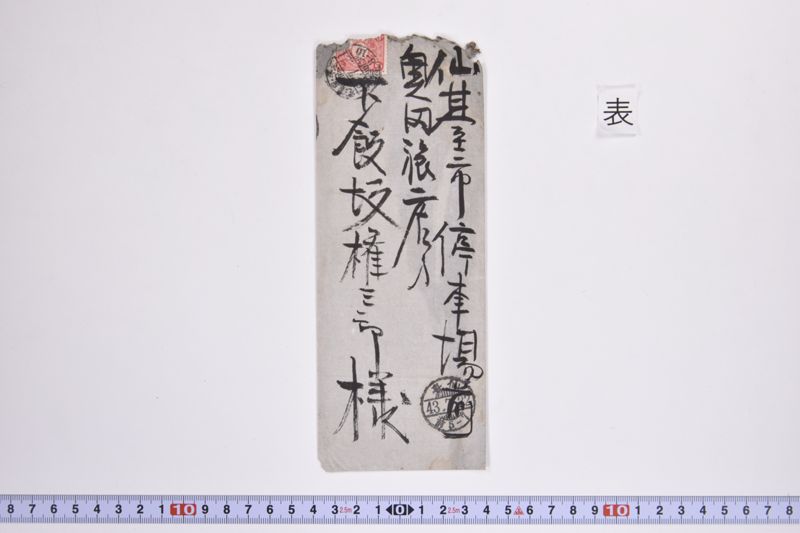 仙臺市停車場前
奥田旅店方
下飯坂権三郎
様
表
43.
8 7 6 5 4 3 2 1 10 9 8 7 6 5 4 3 2.5m 2 1 0 1 2 2.5m 3 4 5 6 7 8 9 10 1 2 3 4 5 6 7 8